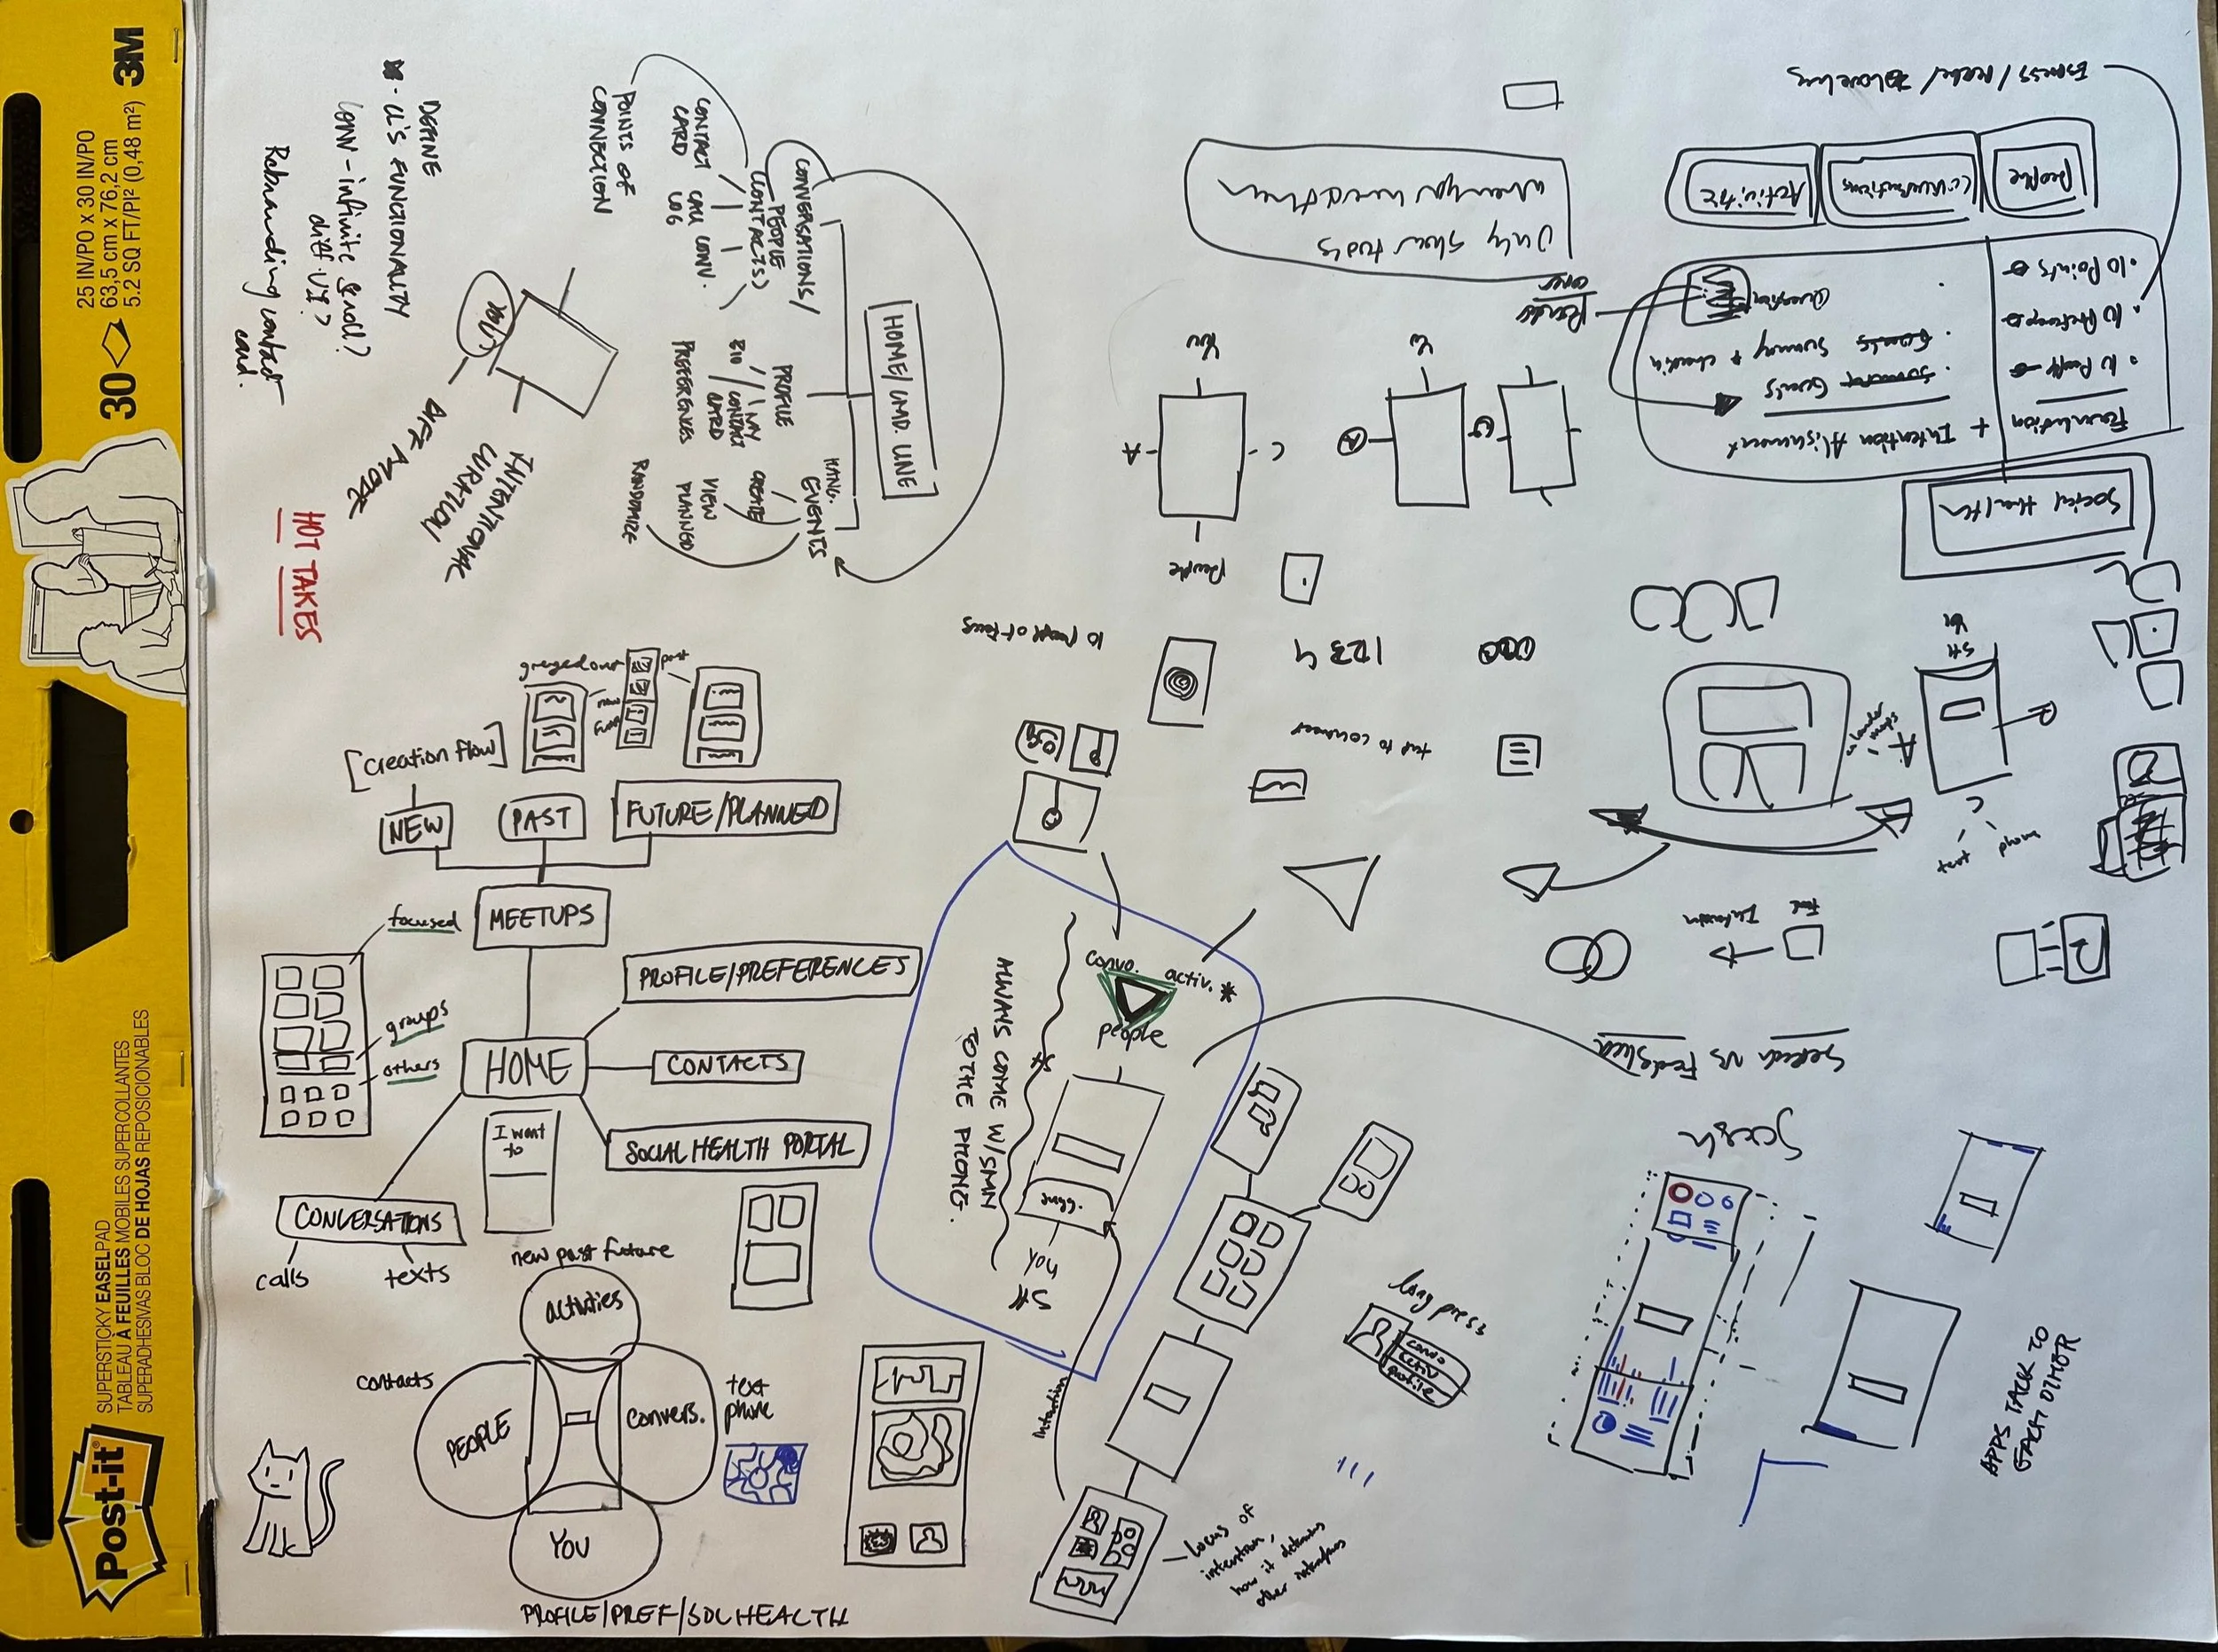 Post-it
SUPERSTICKY EASELPAD
TABLEAU À FEUILLES MOBILES SUPERCOLLANTES
SUPERADHESIVAS BLOC DE HOJAS REPOSICIONABLES
30
25 IN/PO x 30 IN/PO
63,5 cm x 76,2 cm
5.2 SQ FT/PI² (0,48 m²)
3M
DEFINE
CL'S FUNCTIONALITY
CONN - infinite scroll?
diff. UI?
Rebranding contact
card.
HOT TAKES
YOU
DIFF MODE
INTENTIONAL
CURATION
HOME/CMD. LINE
CONVERSATIONS/
PEOPLE
(CONTACTS)
CONTACT
CARD
CALL
LOG
CONV.
POINTS OF
CONNECTION
PROFILE
BIO/
MY
CONTACT
CARD
PREFERENCES
HANG.
EVENTS
CREATE
VIEW
PLANNED
RANDOMIZE
greyed out
past
now
future
[creation flow]
NEW
PAST
FUTURE/PLANNED
MEETUPS
focused
groups
others
PROFILE/PREFERENCES
HOME
CONTACTS
I want
to
SOCIAL HEALTH PORTAL
CONVERSATIONS
calls
texts
new past future
activities
contacts
PEOPLE
convers.
text
phone
YOU
PROFILE/PREF/SOCHEALTH
ALWAYS COME W/SMN
TO THE PHONE.
convo.
activ. *
people
sugg.
YOU
SH
intention
locus of
intention,
how it determines
other interfaces
long press
convo
activ
profile
Search
APPS TALK TO
EACH OTHER
Search vs Feedshed
People
Conversations
Activities
Only show tools
when you need them
Foundation + Intention Alignment
• 10 People
• 10
• 10 Points
Goals
• Summary + checkin
Question
Social Health
You
A
C
people
You
A
10 people of focus
1 2 3 4
tap to connect
You
SH
P
A
calendar
maps
C
text
phone